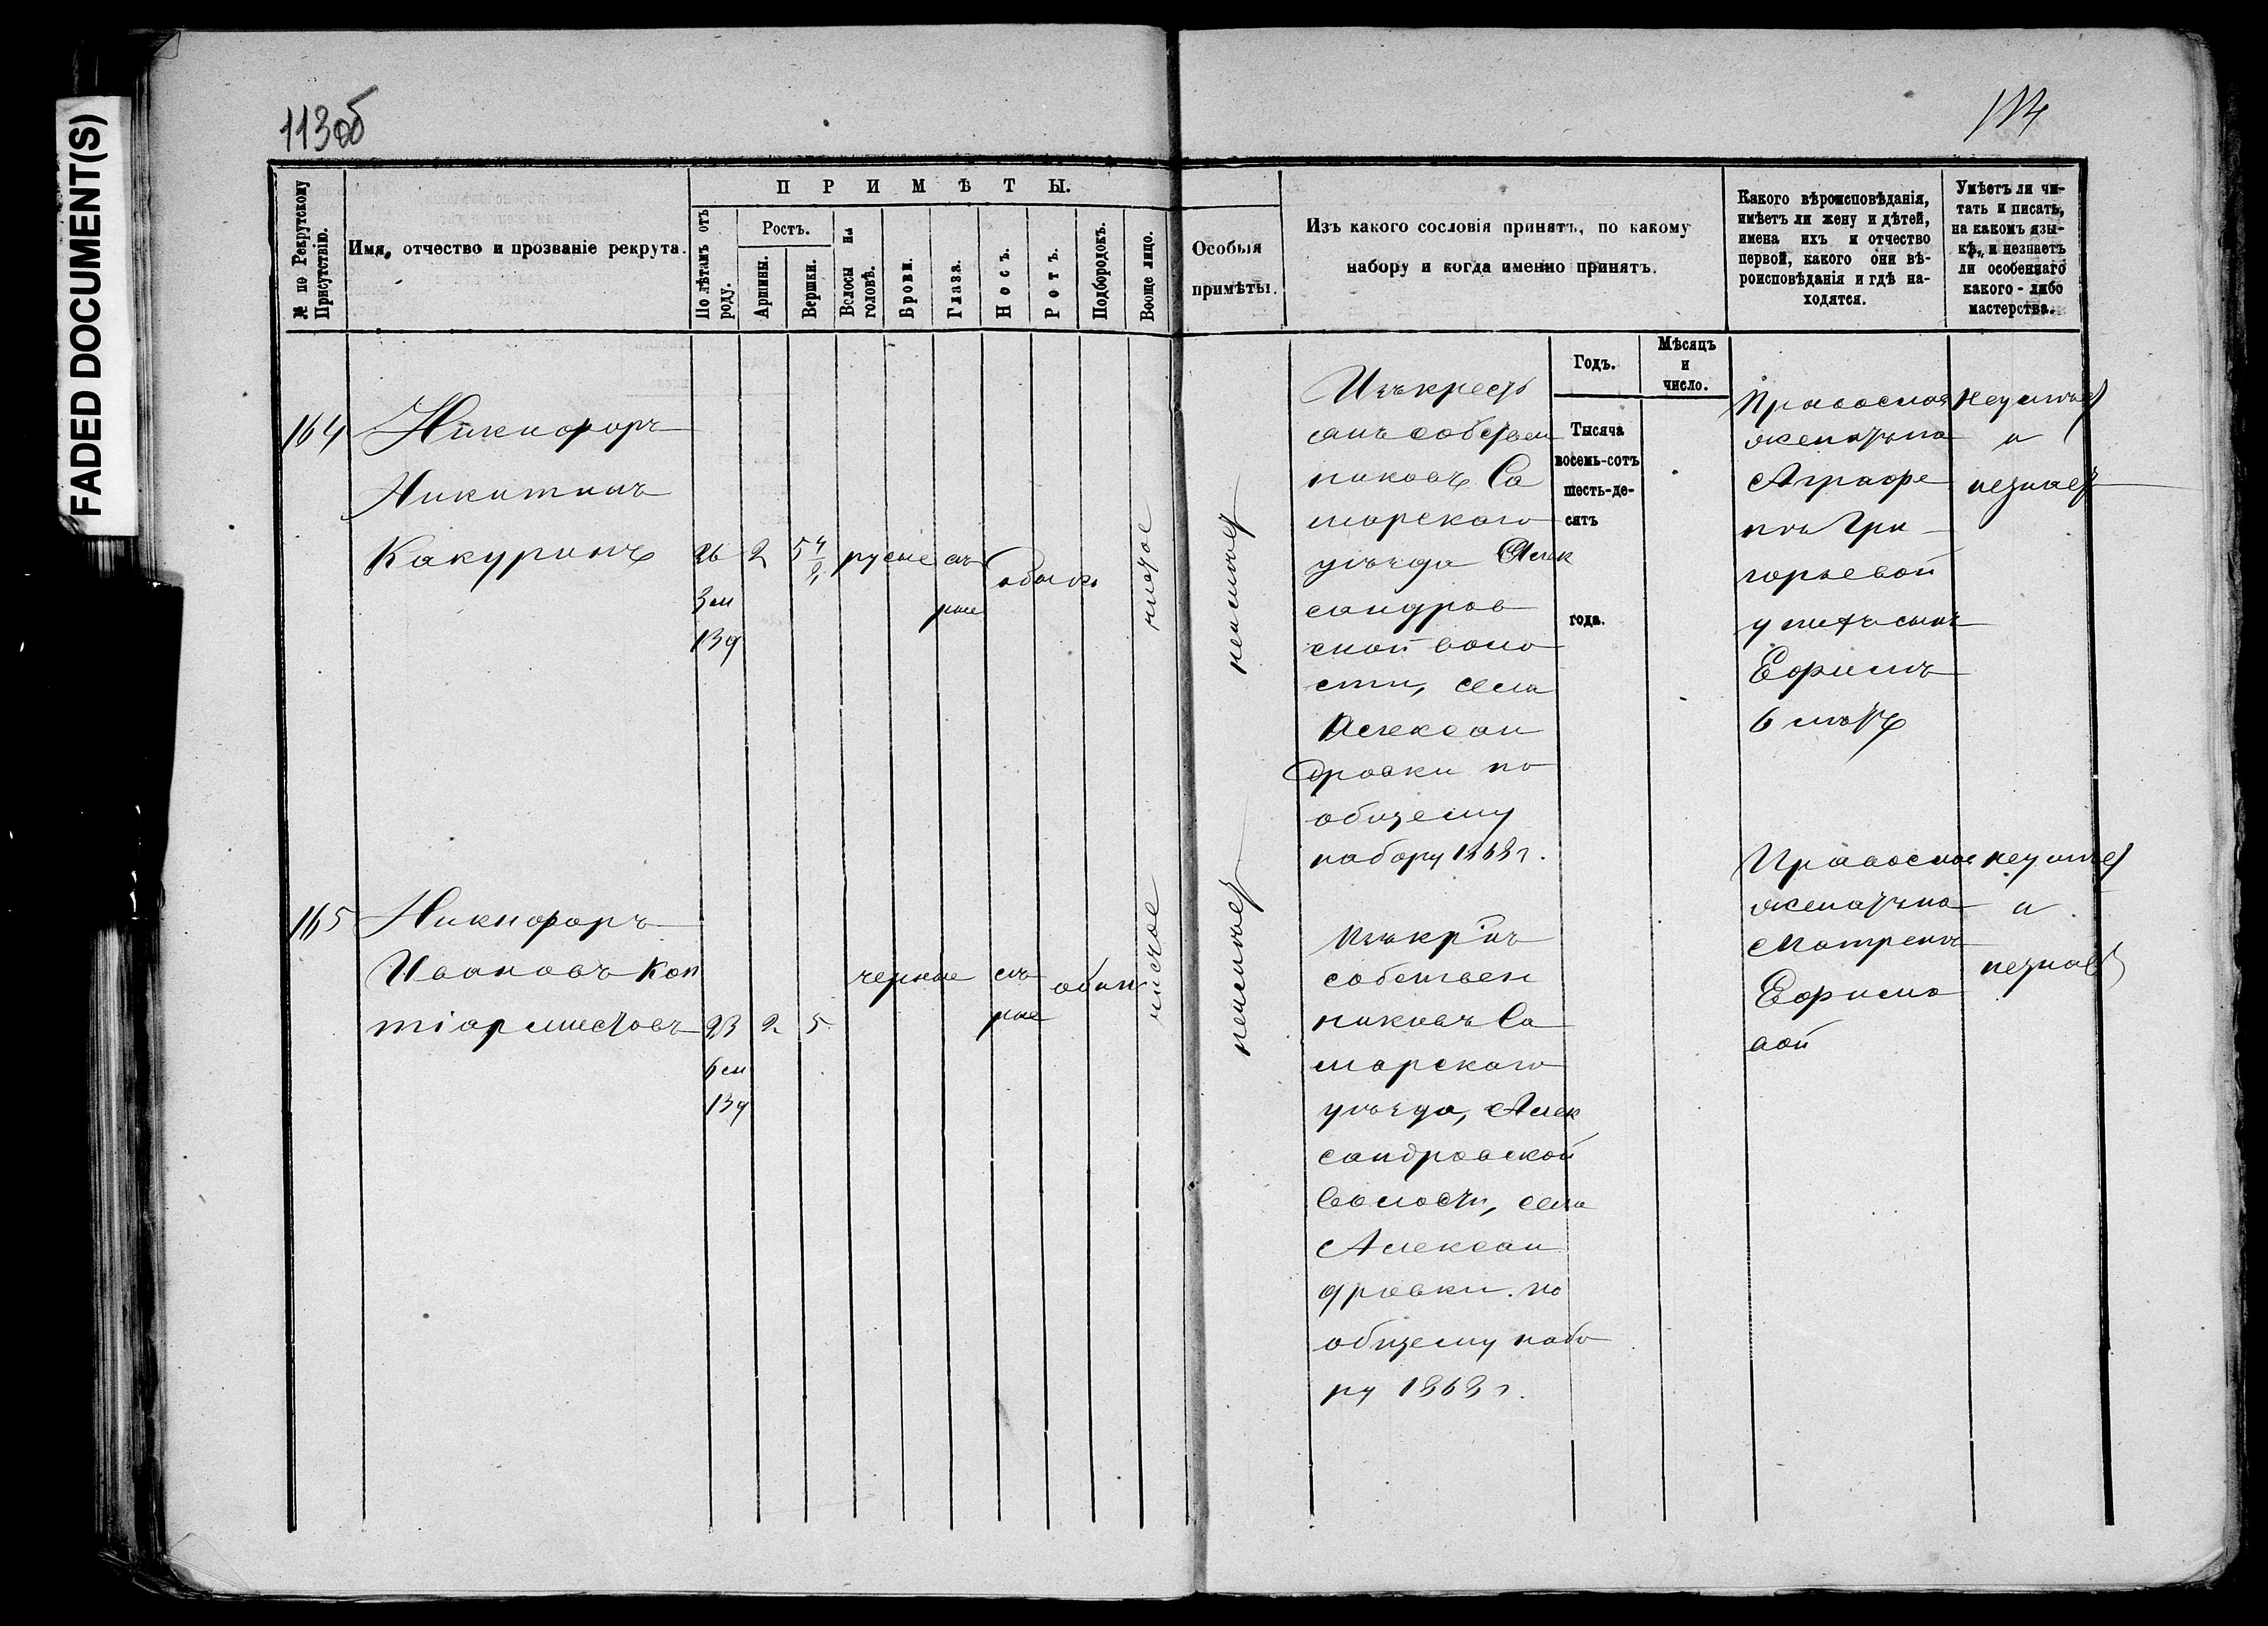 FADED DOCUMENT(S)
113об
114
№ по Рекрутскому Присутствію.
Имя, отчество и прозваніе рекрута.
ПРИМѢТЫ.
По лѣтамъ отъ роду.
Ростъ.
Аршины.
Вершки.
Волосы на головѣ.
Брови.
Глаза.
Носъ.
Ротъ.
Подбородокъ.
Вооще лицо.
Особыя
примѣты.
Изъ какого сословія принятъ, по какому
набору и когда именно принятъ.
Какого вѣроисповѣданія,
имѣетъ ли жену и дѣтей,
имена ихъ и отчество
первой, какого они вѣ-
роисповѣданія и гдѣ на-
ходятся.
Умѣетъ ли чи-
тать и писать,
на какомъ язы-
кѣ, и незнаетъ
ли особеннаго
какого-либо
мастерства.
Годъ.
Мѣсяцъ
и
число.
Тысяча
восемь-сотъ
шесть-де-
сятъ
года.
164
Никифоръ
Никитинъ
Какуринъ
26
3 м
13 д
2
5 4/8
русые
сѣ
рые
обык.
чистое
неимѣетъ
Изъ крестъ
янъ собствен
никовъ Са
марскаго
уѣзда Алек
сандров
ской воло
сти, села
Алексан
дровки по
общему
набору 1868 г.
Православ
женатъ на
Аграфе
нѣ Гри
горьевой
у нихъ сынъ
Ефимъ
6 лѣтъ
неумѣетъ
и
незнаетъ
165
Никифоръ
Ивановъ Кон
тіармистовъ
23
6 м
13 д
2
5
черные
сѣ
рые
обык
чистое
неимѣетъ
Изъ кр-нъ
собствен
никовъ Са
марскаго
уѣзда, Алек
сандровской
волости, села
Алексан
дровки. по
общему набо
ру 1868 г.
Православ
женатъ на
Матренѣ
Ефимо
вой
неумѣетъ
и
незнаетъ